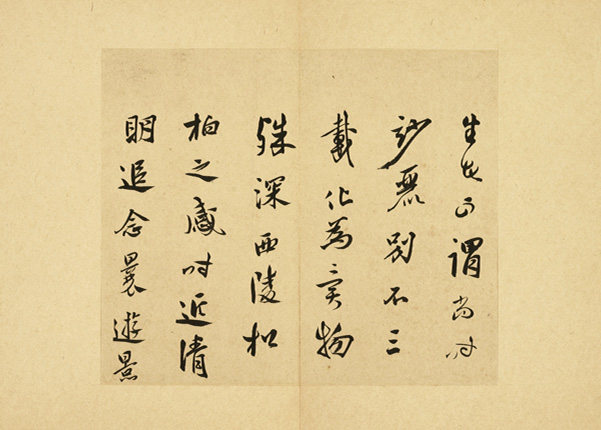 生可謂當时
妙麗別不三
載化為異物
殊深西陵松
柏之感时近清
明追念曩遊景